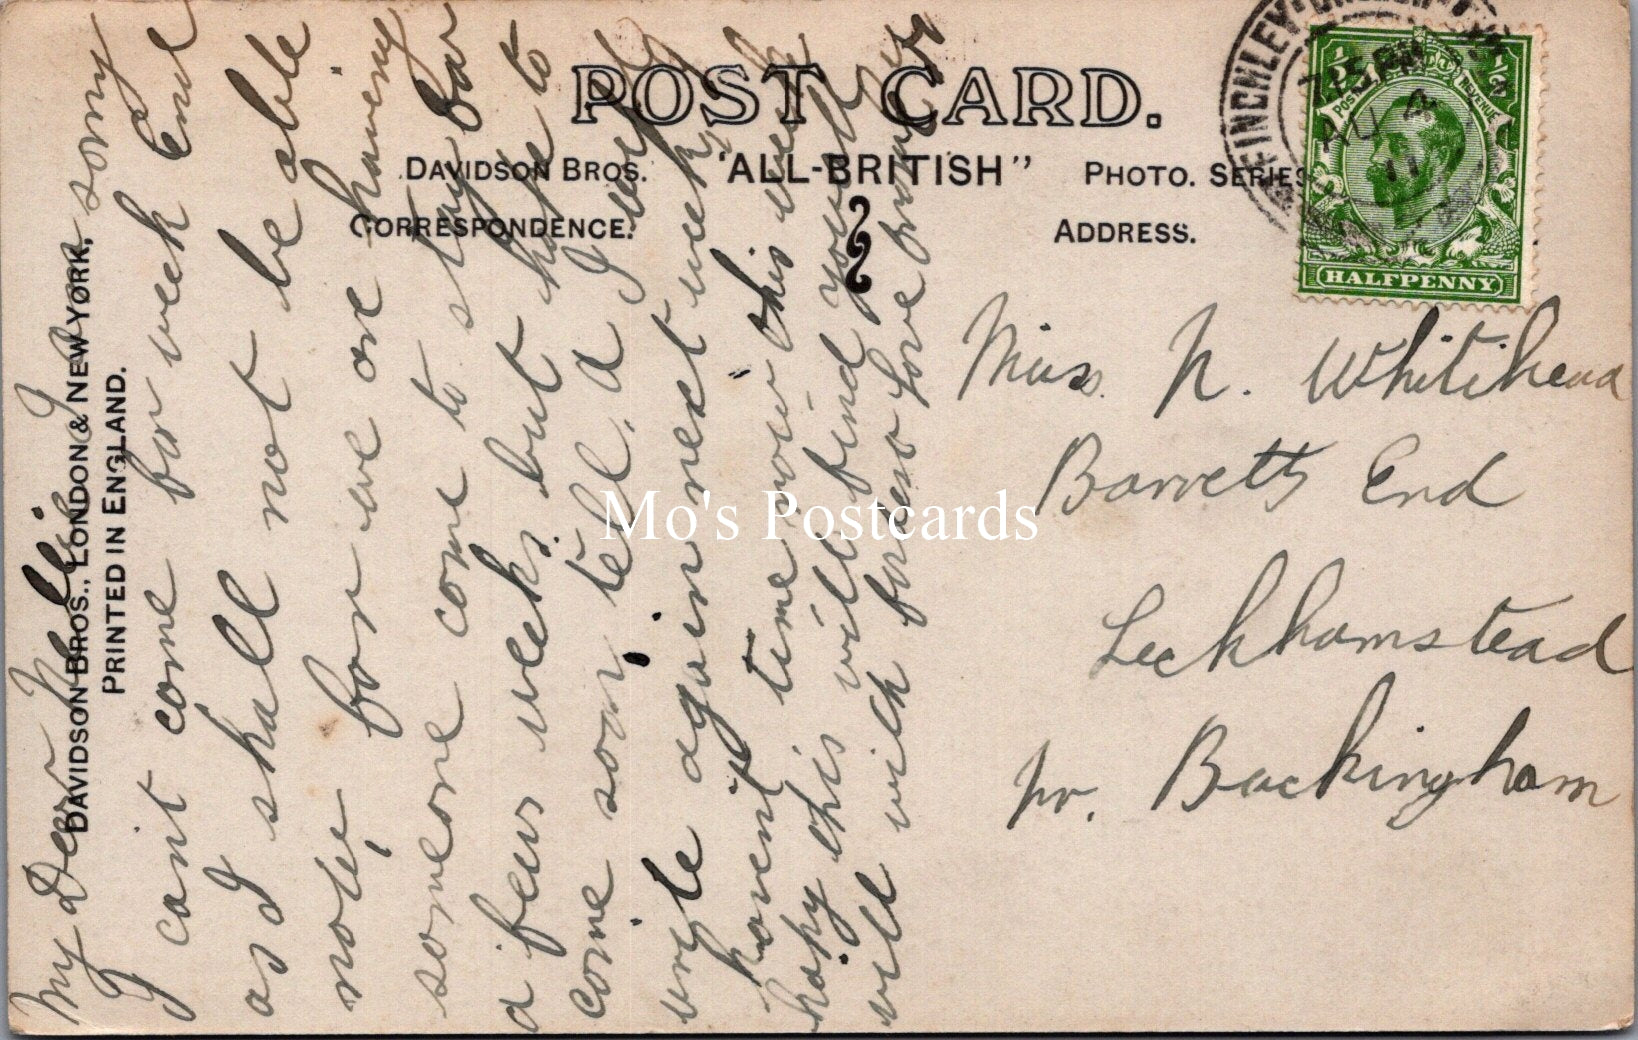 POST CARD.
DAVIDSON BROS. "ALL-BRITISH" PHOTO. SERIES
CORRESPONDENCE.
ADDRESS.
DAVIDSON BROS., LONDON & NEW YORK,
PRINTED IN ENGLAND.
My Dear Nelli. I am sorry
I cant come for week End
as I shall not be able
now for we are having
someone come to stay for
a few weeks, but hope to
come soon, tell. A I will
write again next week
havent time now this week
hapy this will find you all
will with fondest love from
Miss. N. Whitihead
Barretts End
Leckhamstead
nr. Buckingham
FINCHLEY
7.15 PM
AU 4
11
1/2 1/2
POSTAGE REVENUE
HALFPENNY
Mo's Postcards